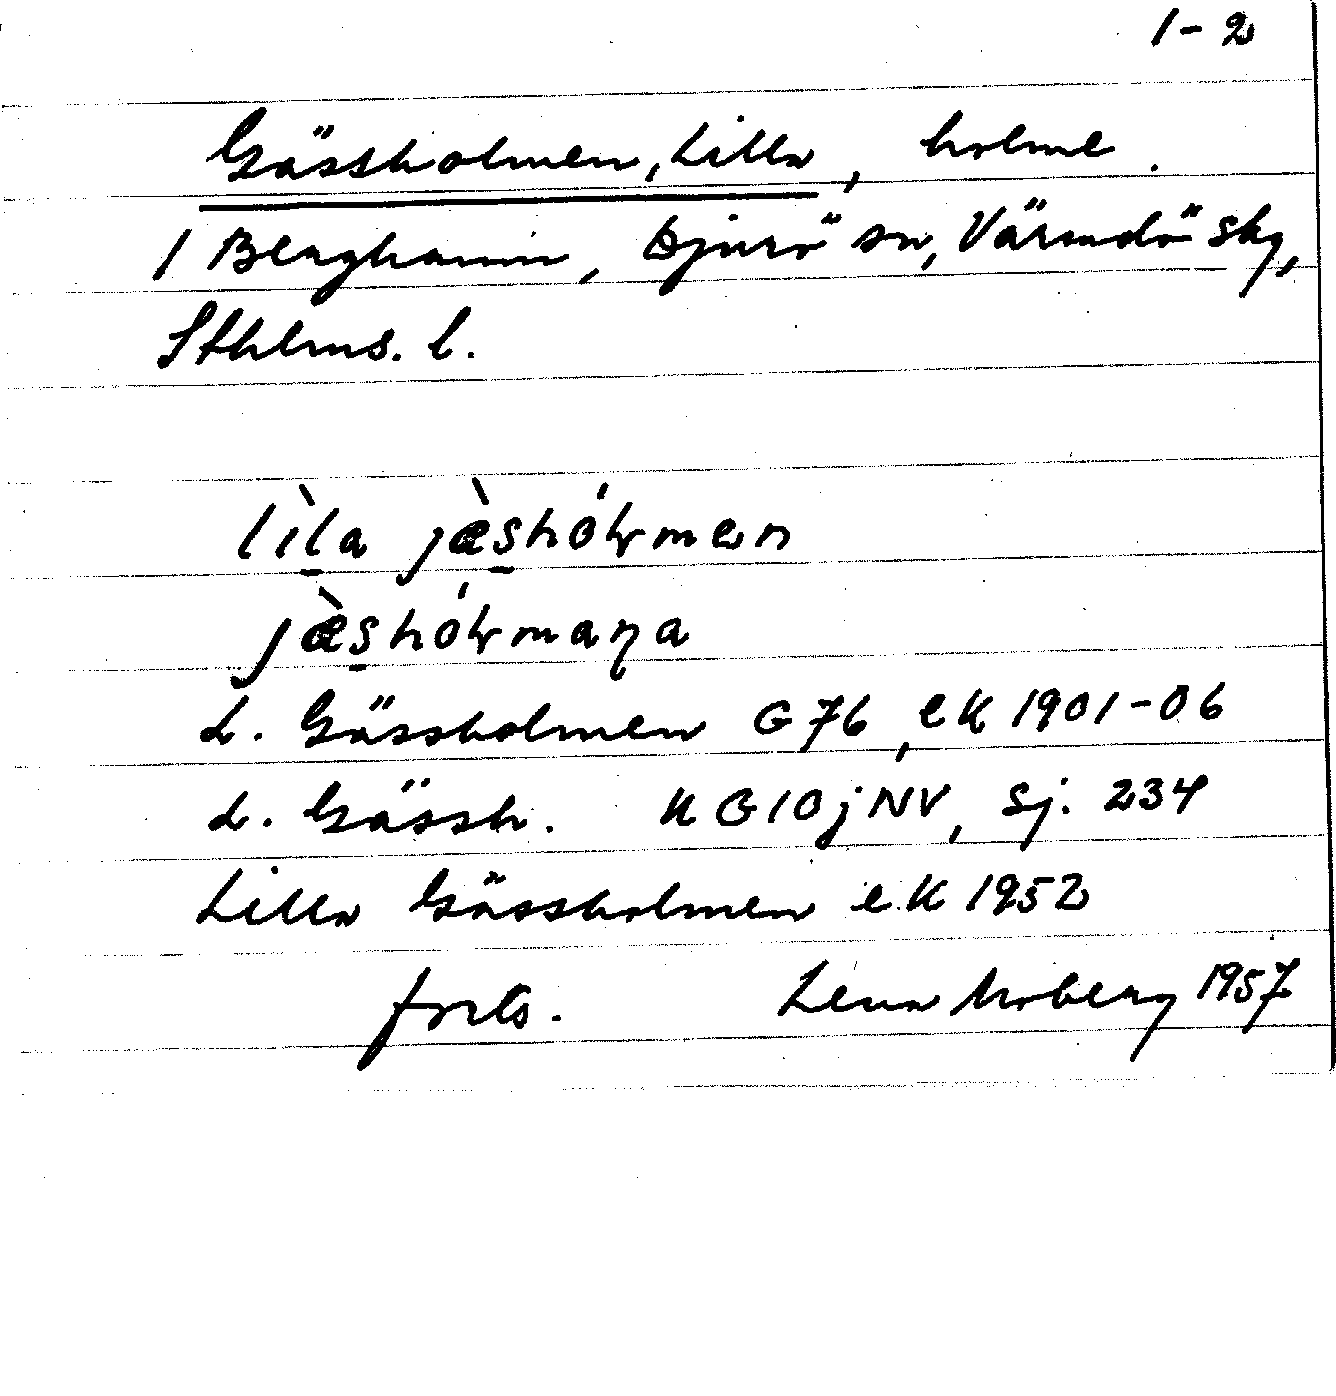 1-2
Gässholmen, Lilla, holme.
/ Berghamn, Djurö sn, Värmdö skg,
Sthlms. l.
lìla jæ̀shólmen
jæ̀shólmaṇa
L. Gässholmen G 76, eK 1901-06
L. Gässh. K G 10 j NV, Sj. 234
Lilla Gässholmen e.K 1952
forts. Lena Moberg 1957